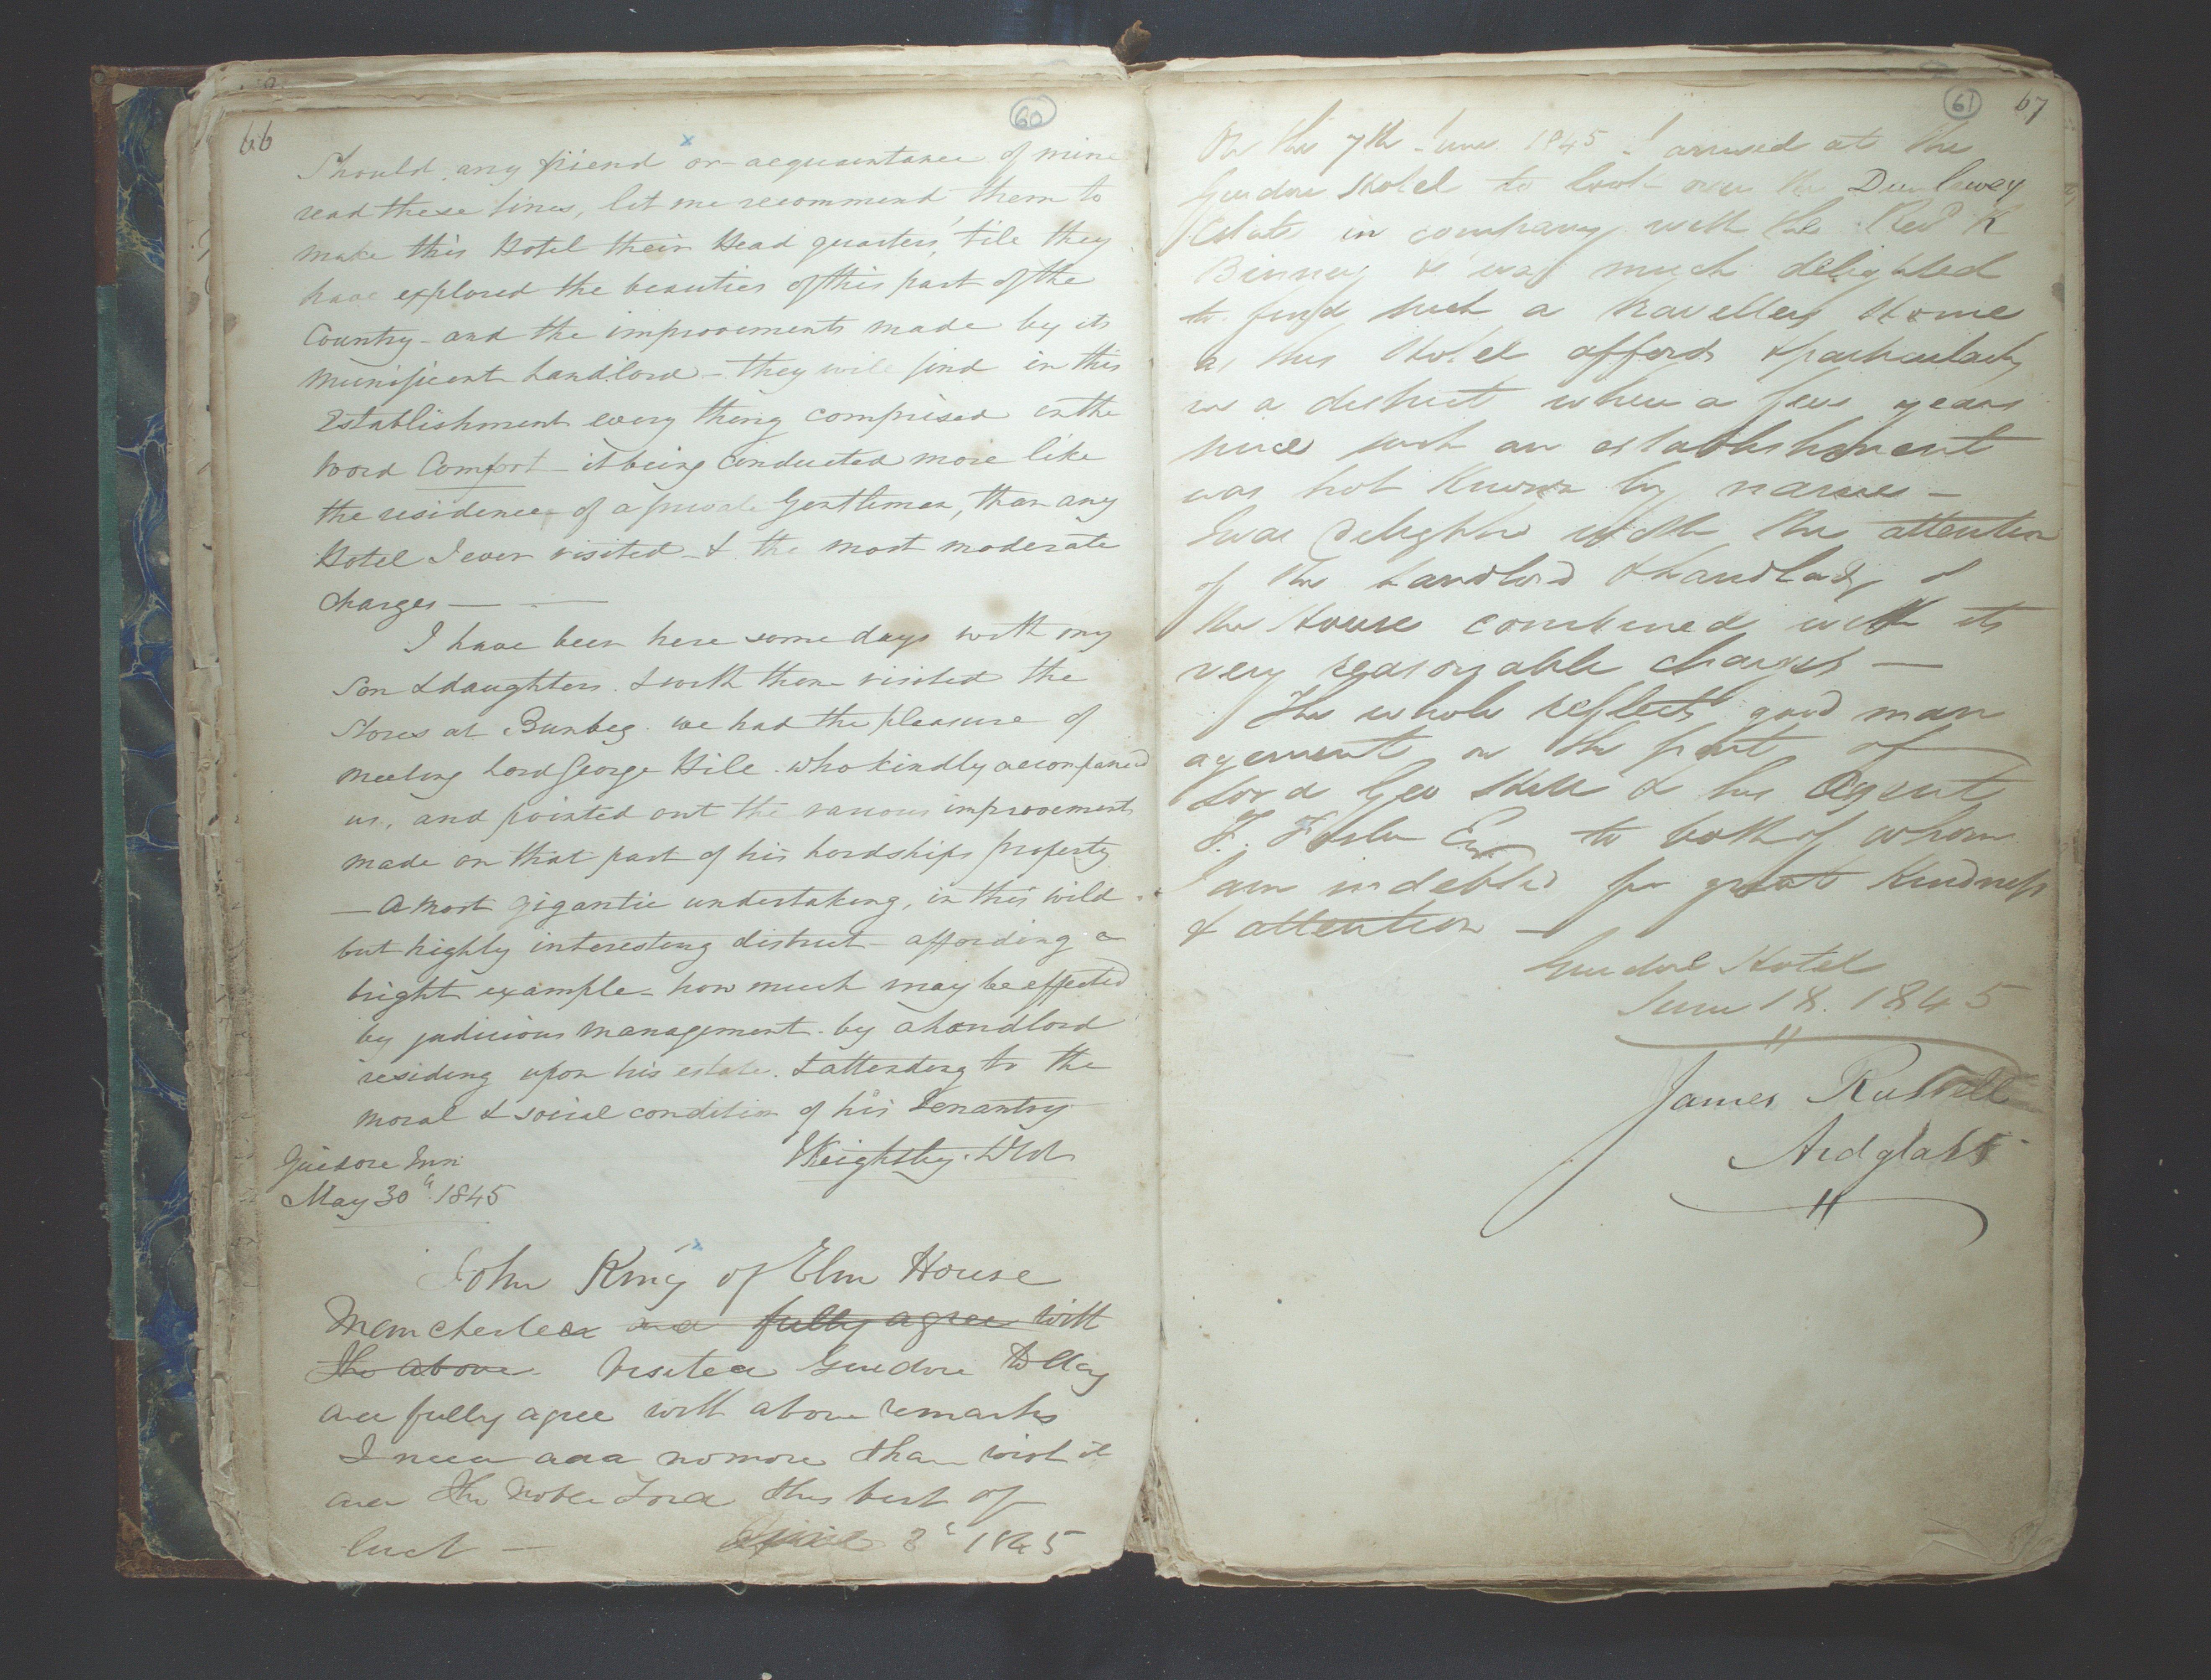 66
60
Should any friend or acquaintance of mine
read these lines, let me recommend them to
make this Hotel their Head quarters, 'till they
have explored the beauties of this part of the
Country - and the improvements made by its
munificent Landlord - they will find in this
Establishment every thing comprised in the
word Comfort - it being conducted more like
the residence of a private Gentleman, than any
Hotel I ever visited - & the most moderate
charges —
I have been here some days with my
Son & daughters. & with them visited the
Stores at Bunbeg. we had the pleasure of
meeting Lord George Hill. who kindly accompanied
us, and pointed out the various improvements
made on that part of his Lordships property
— a most gigantic undertaking, in this wild
but highly interesting district - affording a
bright example - how much may be effected
by judicious management. by a Landlord
residing upon his estate. & attending to the
moral & social condition of his Tenantry
Guidore Inn
May 30th 1845
John King of Elm House
Manchester and fully agree with
the above. Visited Guedore to Day
and fully agree with above remarks
I need add no more than wish it
and the Noble Lord the best of
luck — June 2d 1845
61
67
On the 7th June 1845 I arrived at the
Guedore Hotel to look over the Dunlewey
Estate in company with the Revd R
Binney & was much delighted
to find such a Travellers Home
as this Hotel affords & particularly
in a district where a few years
since such an establishment
was not known by name —
I was delighted with the attention
of the Landlord & Landlady of
the House combined with its
very reasonable charges —
The whole reflects good man
agement on the part of
Lord Geo Hill & his Agent
F. Forster Esq to both of whom
I am indebted for great kindness
& attention —
Guedore Hotel
June 18. 1845
James Russell
Ardglass